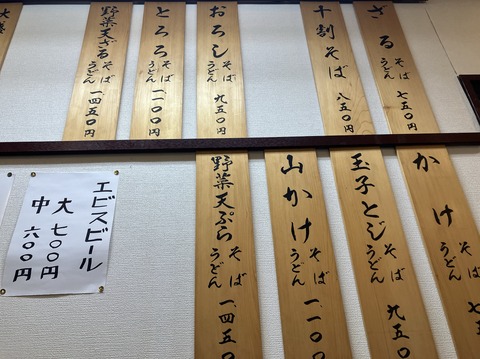 ざる そば うどん 七五〇円
十割そば 八五〇円
おろし そば うどん 九五〇円
とろろ そば うどん 一一〇〇円
野菜天ざる そば うどん 一四五〇円
大盛
かけ そば うどん 七五
玉子とじ そば うどん 九五〇
山かけ そば うどん 一、一〇〇
野菜天ぷら そば うどん 一、四五〇
エビスビール
大 七〇〇円
中 六〇〇円